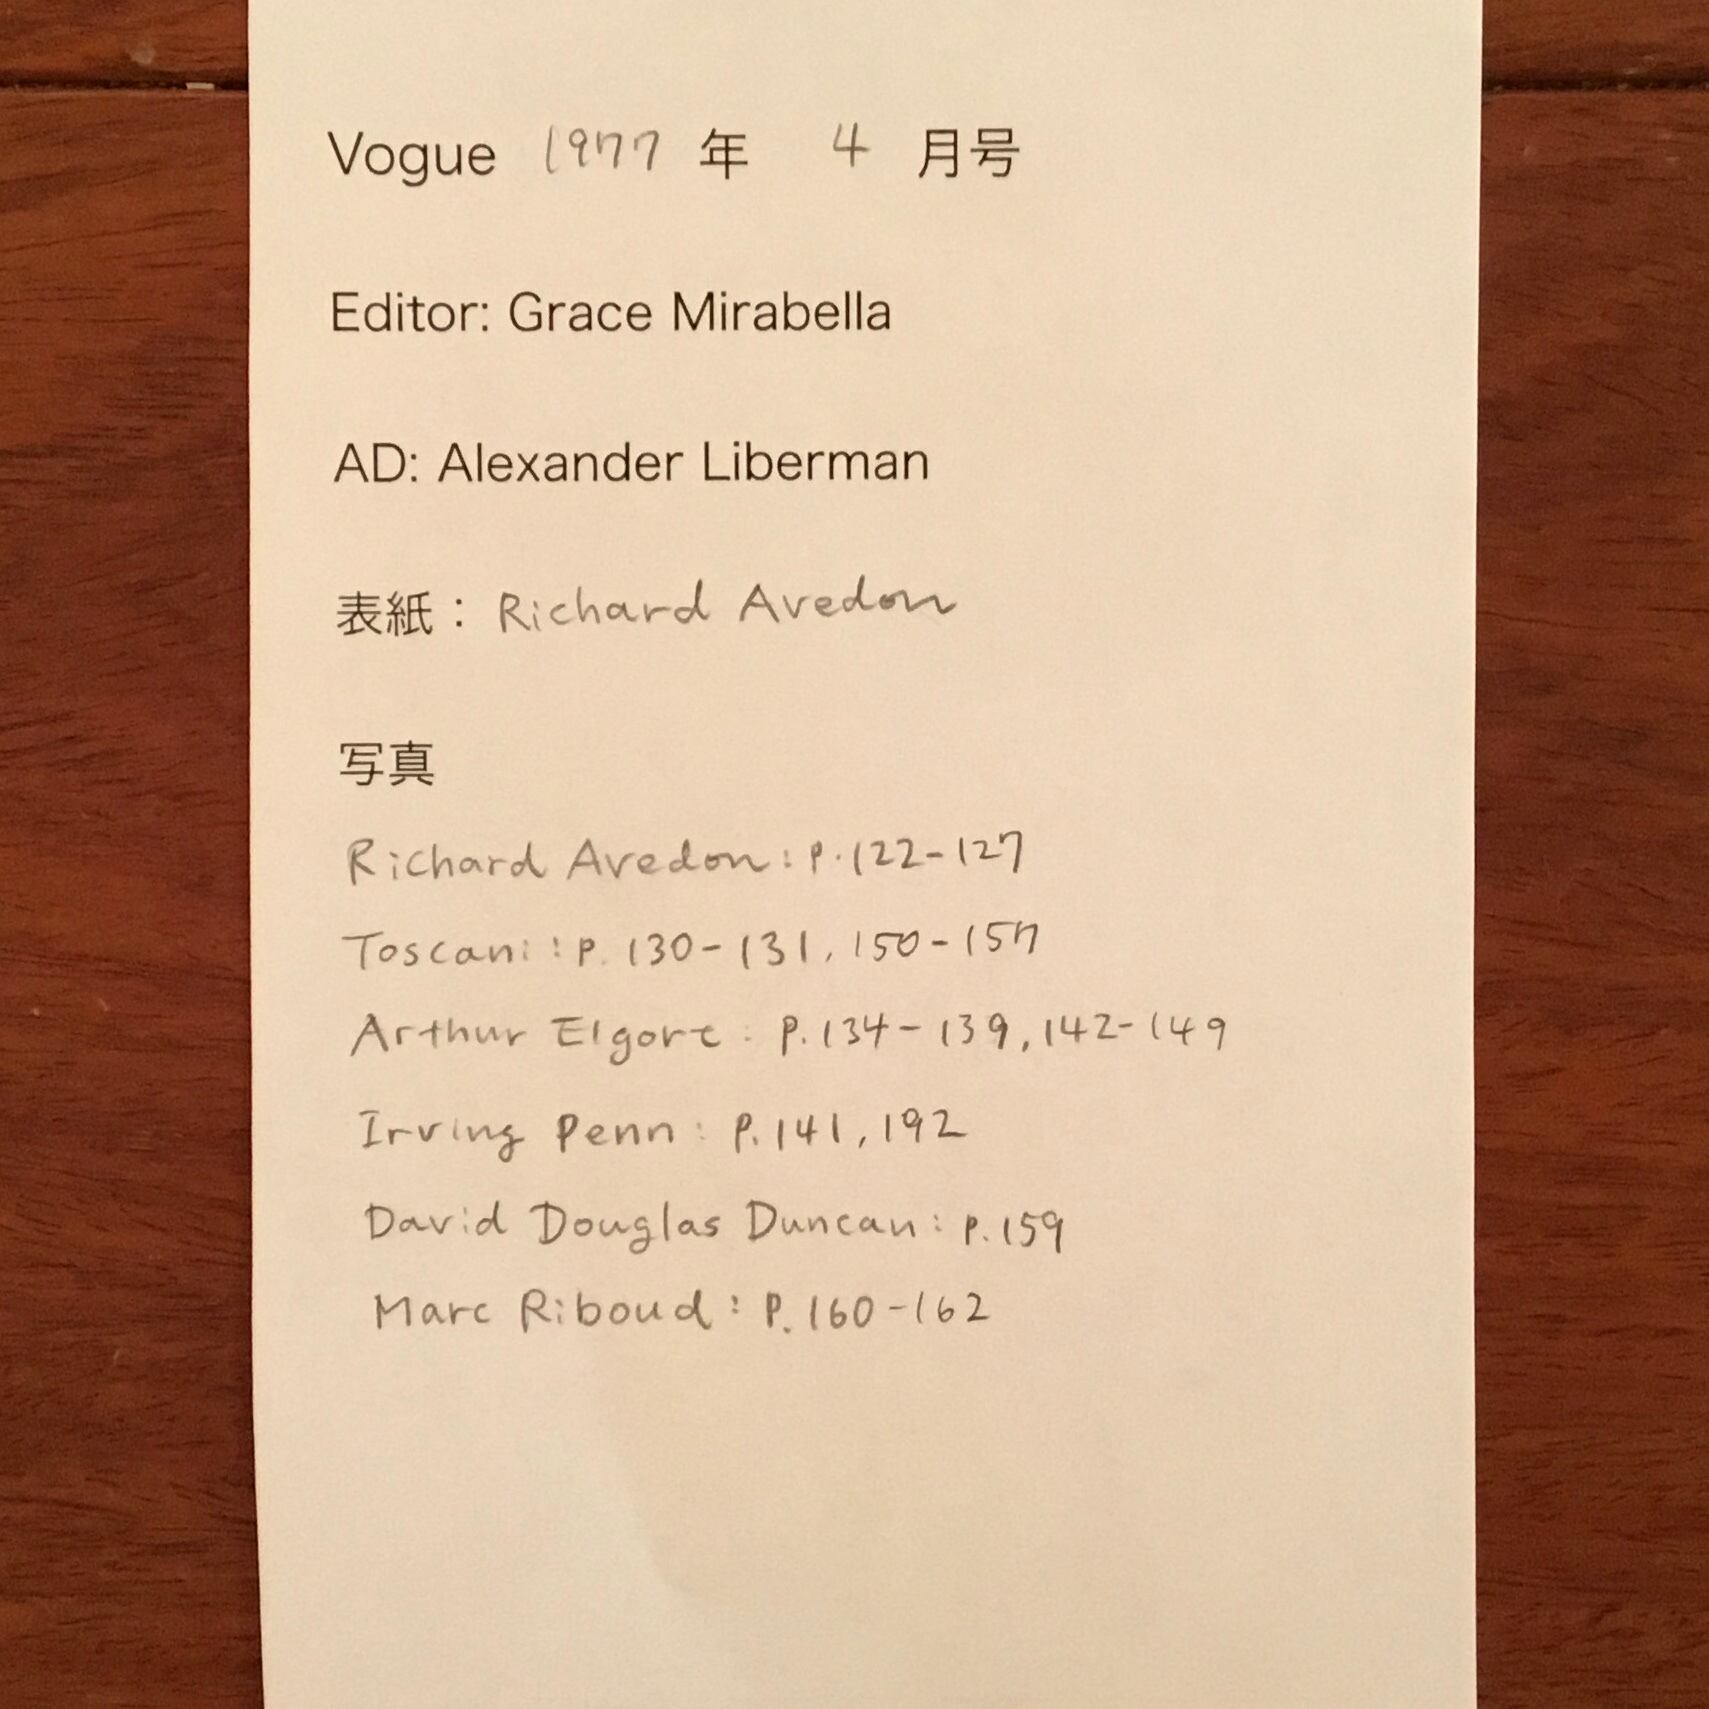 Vogue 1977 年 4 月号
Editor: Grace Mirabella
AD: Alexander Liberman
表紙：Richard Avedon
写真
Richard Avedon: p.122-127
Toscani: p.130-131, 150-157
Arthur Elgort: p.134-139, 142-149
Irving Penn: p.141, 192
David Douglas Duncan: p.159
Marc Riboud: p.160-162